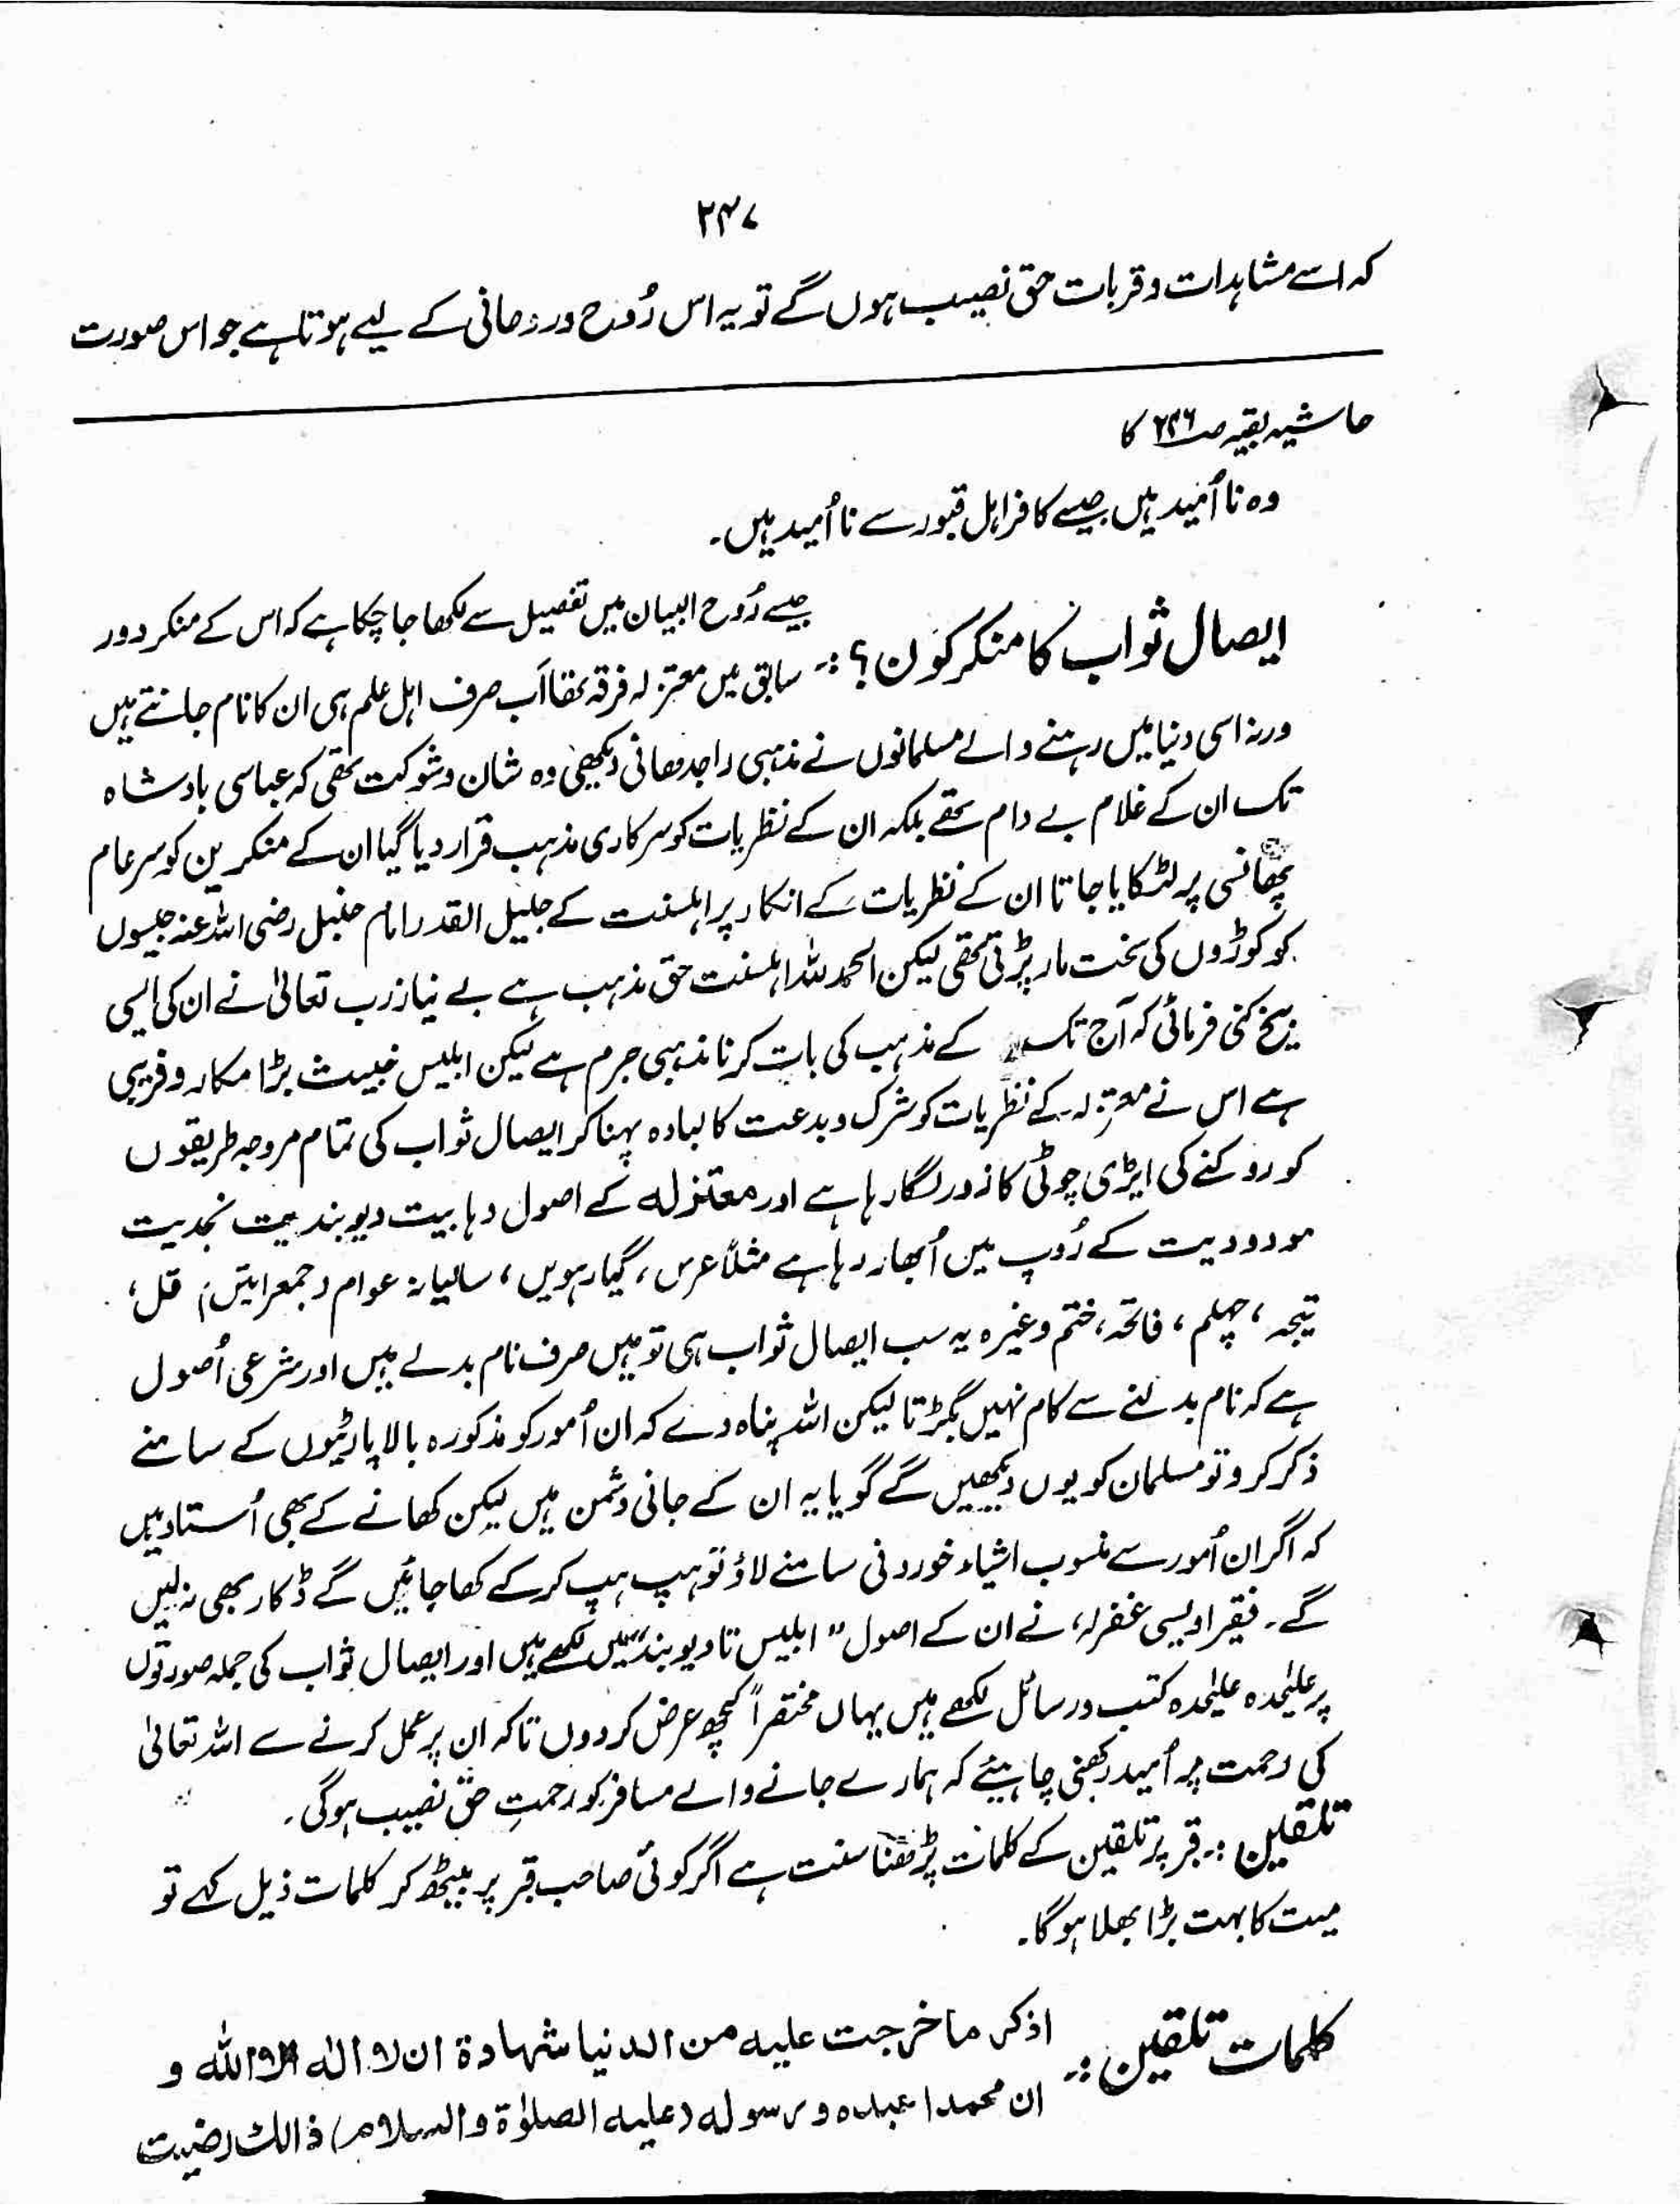 ۲۴۷
کہ اسے مشاہدات و قربات حق نصیب ہوں گے تو یہ اس رُوح و روحانی کے لیے ہوتا ہے جو اس صورت
حاشیہ بقیہ صـ۲۴۶ کا
وہ نا اُمید ہیں جیسے کافر اہل قبور سے نا اُمید ہیں۔
ایصال ثواب کا منکر کون؟ :۔ جیسے رُوح البیان میں تفصیل سے لکھا جا چکا ہے کہ اس کے منکر دور
سابق میں معتزلہ فرقہ تھا اَب صرف اہل علم ہی ان کا نام جانتے ہیں
ورنہ اسی دنیا میں رہنے والے مسلمانوں نے مذہبی راجدھانی دیکھی وہ شان و شوکت تھی کہ عباسی بادشاہ
تک ان کے غلام بے دام تھے بلکہ ان کے نظریات کو سرکاری مذہب قرار دیا گیا ان کے منکرین کو سرعام
پھانسی پر لٹکایا جاتا ان کے نظریات کے انکار پر اہلسنت کے جلیل القدر امام حنبل رضی اللہ عنہ جیسوں
کو کوڑوں کی سخت مار پڑتی تھی لیکن الحمد للہ اہلسنت حق مذہب ہے بے نیاز رب تعالیٰ نے ان کی ایسی
بیخ کنی فرمائی کہ آج تک کے مذہب کی بات کرنا مذہبی جرم ہے لیکن ابلیس خبیث بڑا مکار و فریبی
ہے اس نے معتزلہ کے نظریات کو شرک و بدعت کا لبادہ پہنا کر ایصال ثواب کی تمام مروجہ طریقوں
کو روکنے کی ایڑی چوٹی کا زور لگا رہا ہے اور معتزلہ کے اصول وہابیت دیوبندیت نجدیت
مودودیت کے رُوپ میں اُبھار رہا ہے مثلاً عرس، گیارہویں، سالیانہ عوام (جمعراتیں) قل،
تیجہ، چہلم، فاتحہ، ختم وغیرہ یہ سب ایصال ثواب ہی تو ہیں صرف نام بدلے ہیں اور شرعی اُصول
ہے کہ نام بدلنے سے کام نہیں بگڑتا لیکن اللہ پناہ دے کہ ان اُمور کو مذکورہ بالا پارٹیوں کے سامنے
ذکر کرو تو مسلمان کو یوں دیکھیں گے گویا یہ ان کے جانی دشمن ہیں لیکن کھانے کے بھی اُستاد ہیں
کہ اگر ان اُمور سے منسوب اشیاء خوردنی سامنے لاؤ تو ہپ ہپ کر کے کھا جائیں گے ڈکار بھی نہ لیں
گے۔ فقیر اویسی غفرلہ، نے ان کے اصول "ابلیس تا دیوبند" میں لکھے ہیں اور ایصال ثواب کی جملہ صورتوں
پر علیٰحدہ علیٰحدہ کتب و رسائل لکھے ہیں یہاں مختصراً کچھ عرض کر دوں تاکہ ان پر عمل کرنے سے اللہ تعالیٰ
کی رحمت پر اُمید رکھنی چاہیئے کہ ہمارے جانے والے مسافر کو رحمتِ حق نصیب ہوگی۔
تلقین :۔ قبر پر تلقین کے کلمات پڑھنا سنت ہے اگر کوئی صاحب قبر پر بیٹھ کر کلمات ذیل کہے تو
میت کا بہت بڑا بھلا ہو گا۔
کلمات تلقین :۔ اذکر ما خرجت علیه من الدنیا شهادة ان لا اله الا الله و
ان محمدا عبده و رسوله (علیه الصلوٰة والسلام) ذالك رضیت